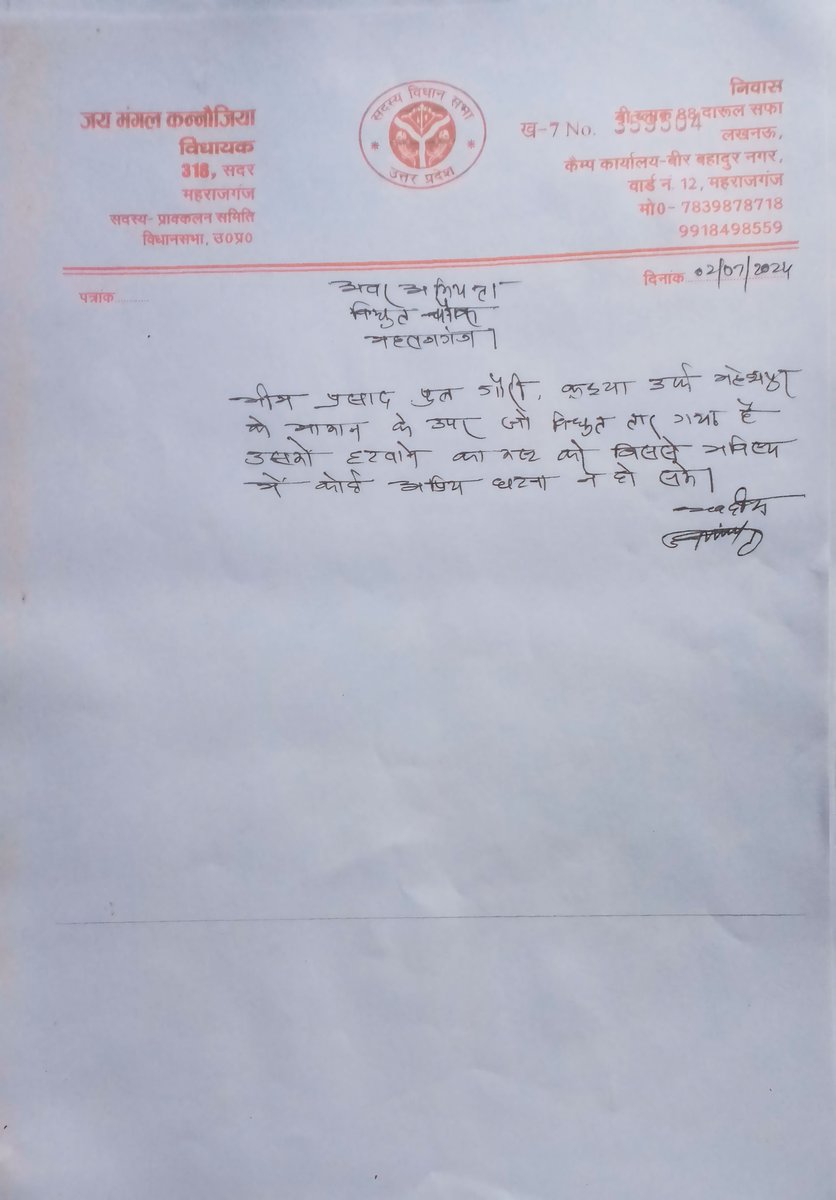 जय मंगल कन्नौजिया
विधायक
318, सदर
महराजगंज
सदस्य- प्राक्कलन समिति
विधानसभा, उ०प्र०
सदस्य विधान सभा
उत्तर प्रदेश
निवास
ख-7 No. 359504
बी ब्लाक 88 दारूल सफा
लखनऊ,
कैम्प कार्यालय-बीर बहादुर नगर,
वार्ड नं. 12, महराजगंज
मो0- 7839878718
9918498559
पत्रांक
दिनांक 02/07/2024
अवर अभियन्ता
विद्युत
महराजगंज।
भीम प्रसाद पुत्र उर्फ महेशपुर
के मकान के उपर जो विद्युत तार गया है
उसको हटवाने का कष्ट करे जिससे भविष्य
में कोई अप्रिय घटना न हो सके।
भवदीय